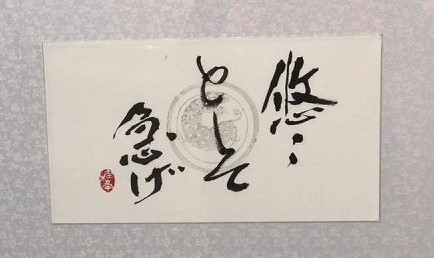 悠々
として
急げ